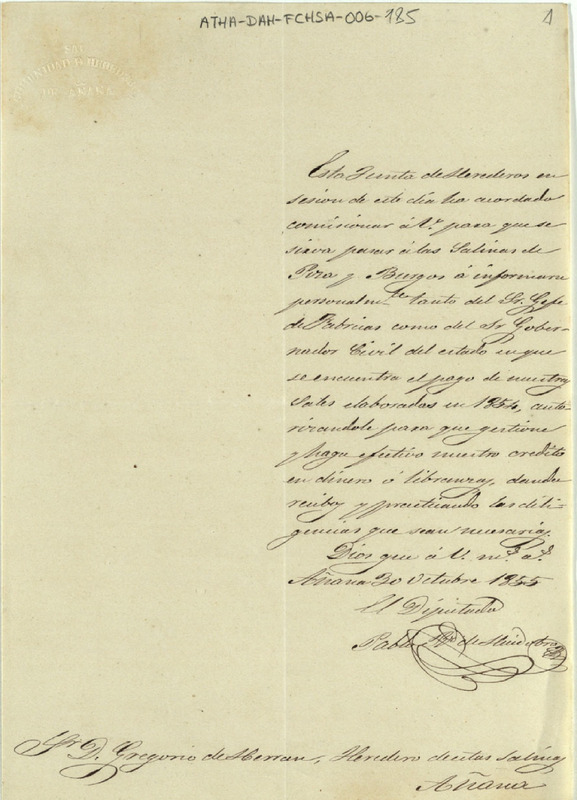 ATHA-DAH-FCHSA-006-185
1
SAL
COMUNIDAD D HEREDEROS
DE AÑANA
Esta Junta de Herederos en
sesion de este dia ha acordado
comisionar á V. para que se
sirva pasar á las Salinas de
Poza y Burgos á informarse
personalmte tanto del Sr. Gefe
de Fabricas como del Sr Gober-
nador Civil del estado en que
se encuentra el pago de nuestras
Sales elaboradas en 1854, auto-
rizandole para que gestione
y haga efectivo nuestro credito
en dinero ó libranzas, dando
recibos y practicando las dili-
gencias que sean necesarias.
Dios gue á V. ms as.
Añana 30 Octubre 1855
El Diputado
Pablo de
Sr. D. Gregorio de Herran, Heredero de estas Salinas
Añana